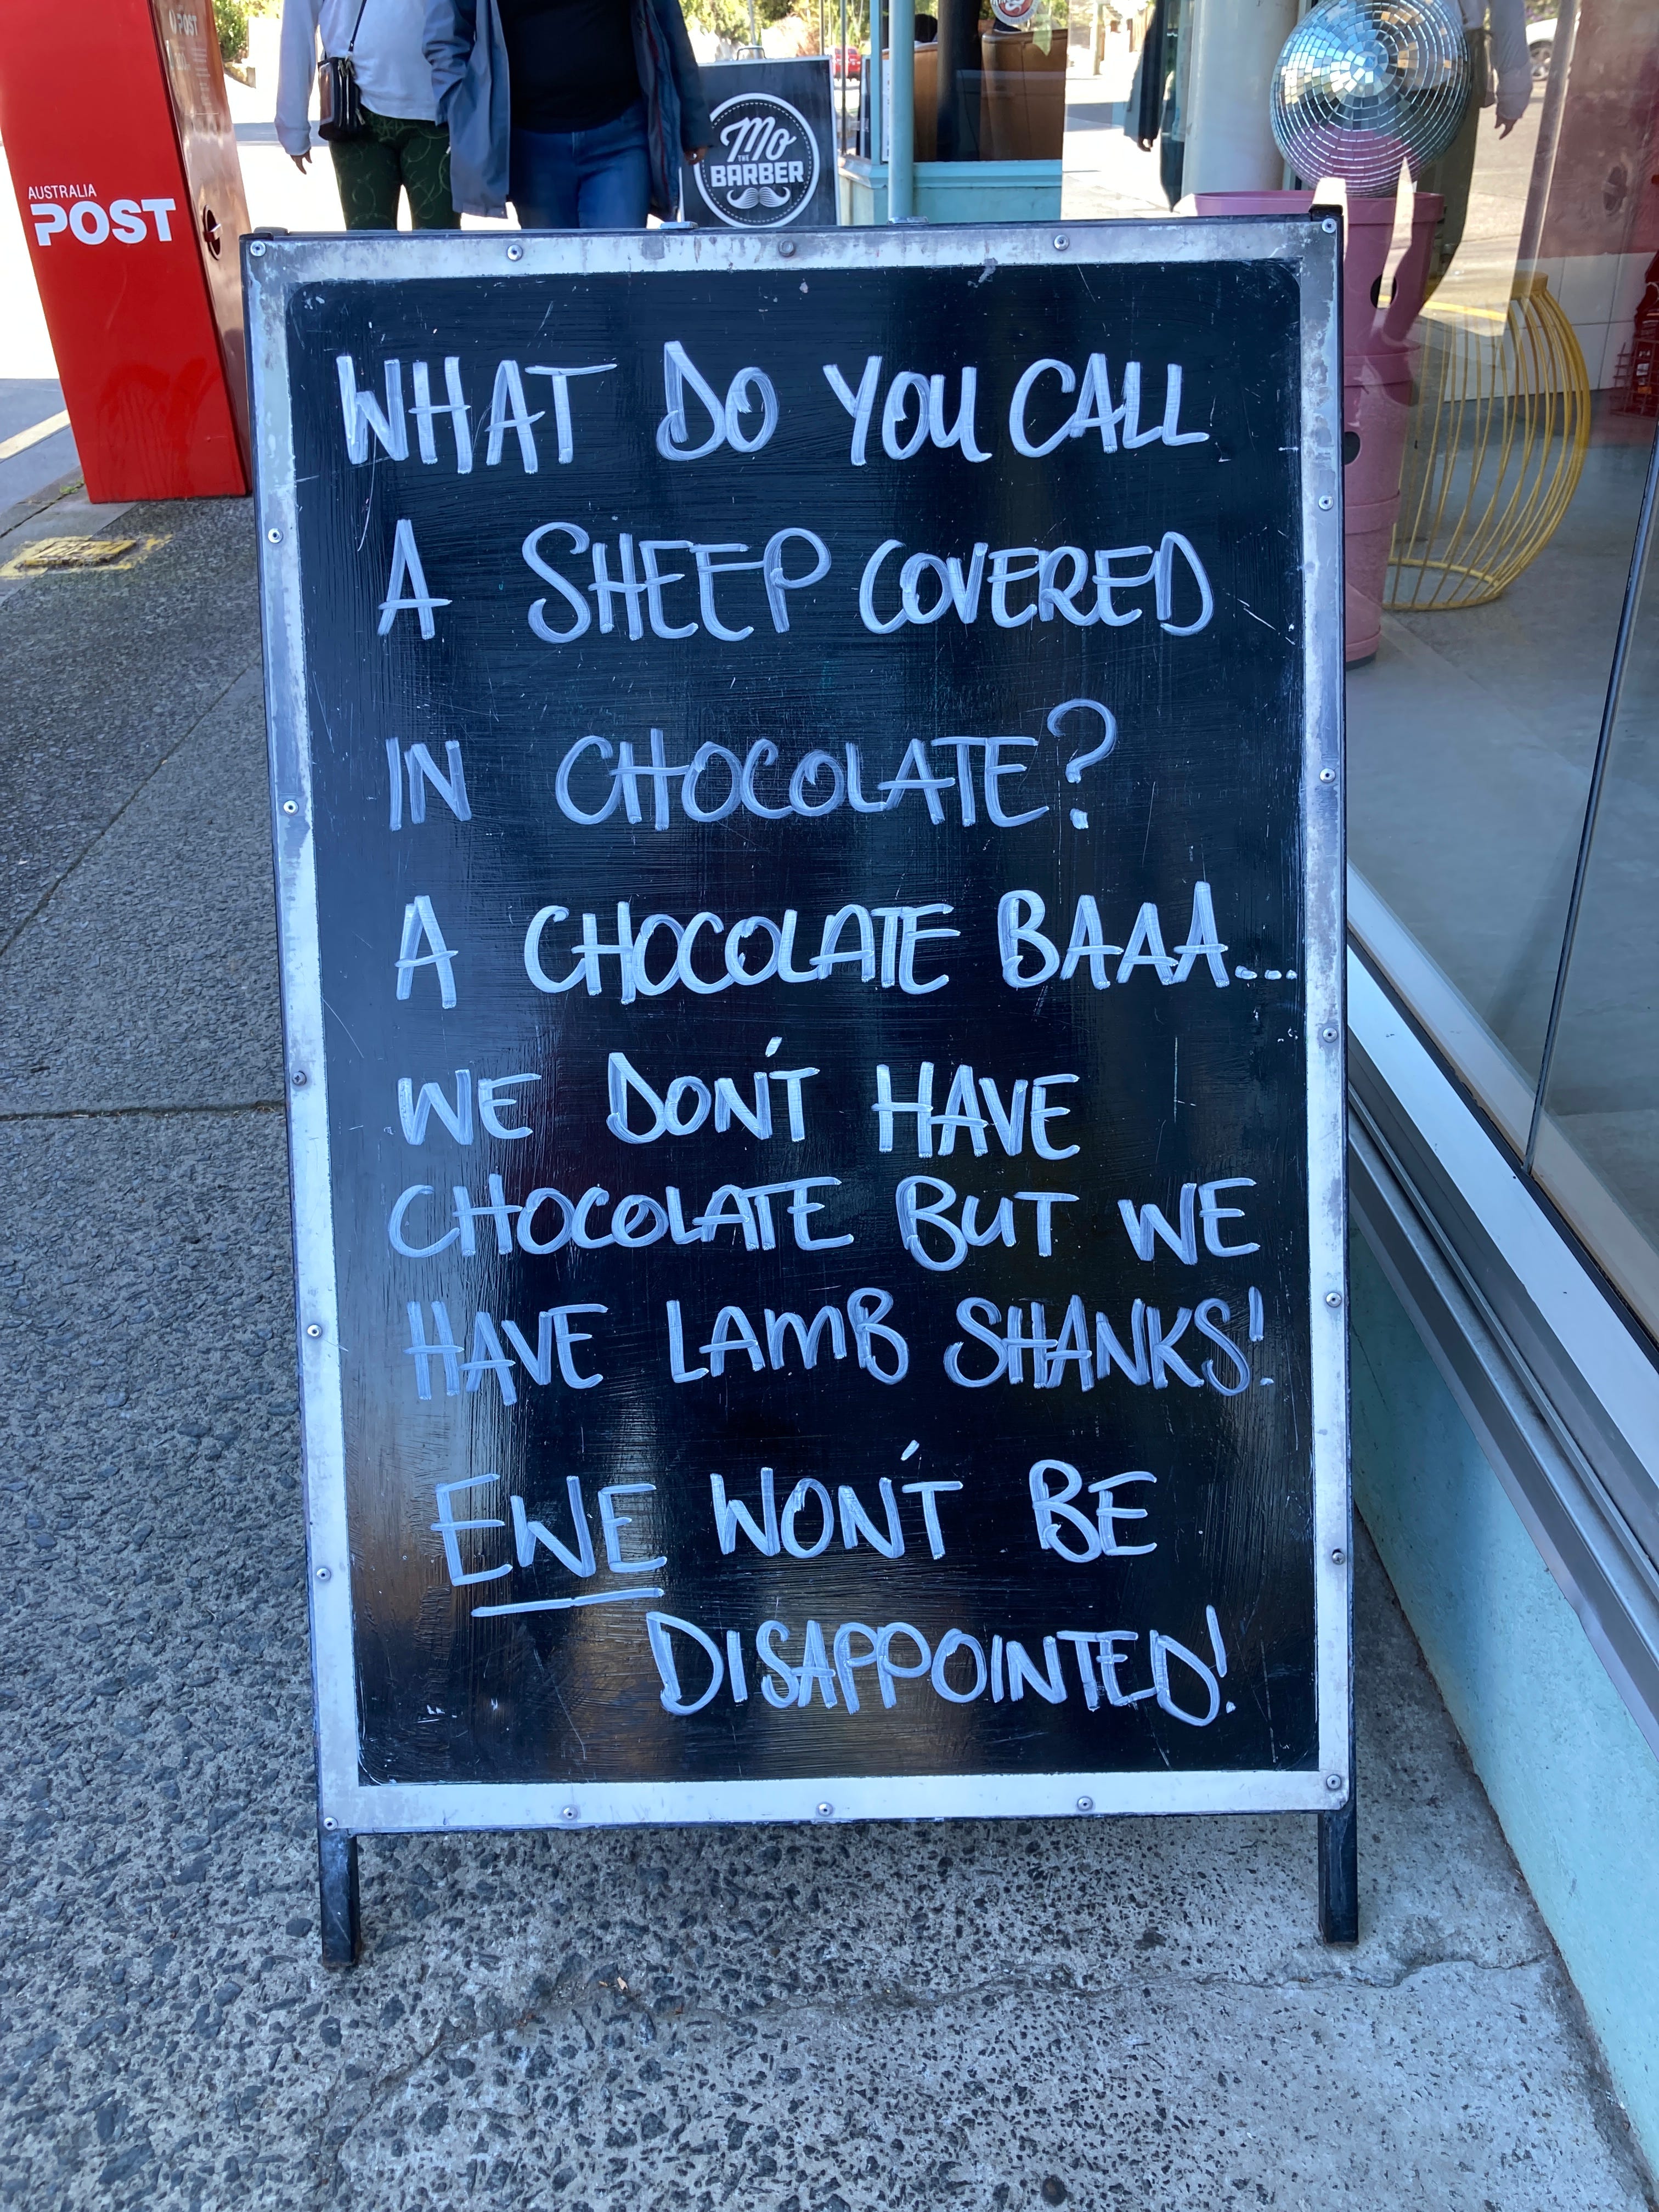 AUSTRALIA
POST
Mo
THE
BARBER
WHAT DO YOU CALL
A SHEEP COVERED
IN CHOCOLATE?
A CHOCOLATE BAAA...
WE DON'T HAVE
CHOCOLATE BUT WE
HAVE LAMB SHANKS!
EWE WON'T BE
DISAPPOINTED!